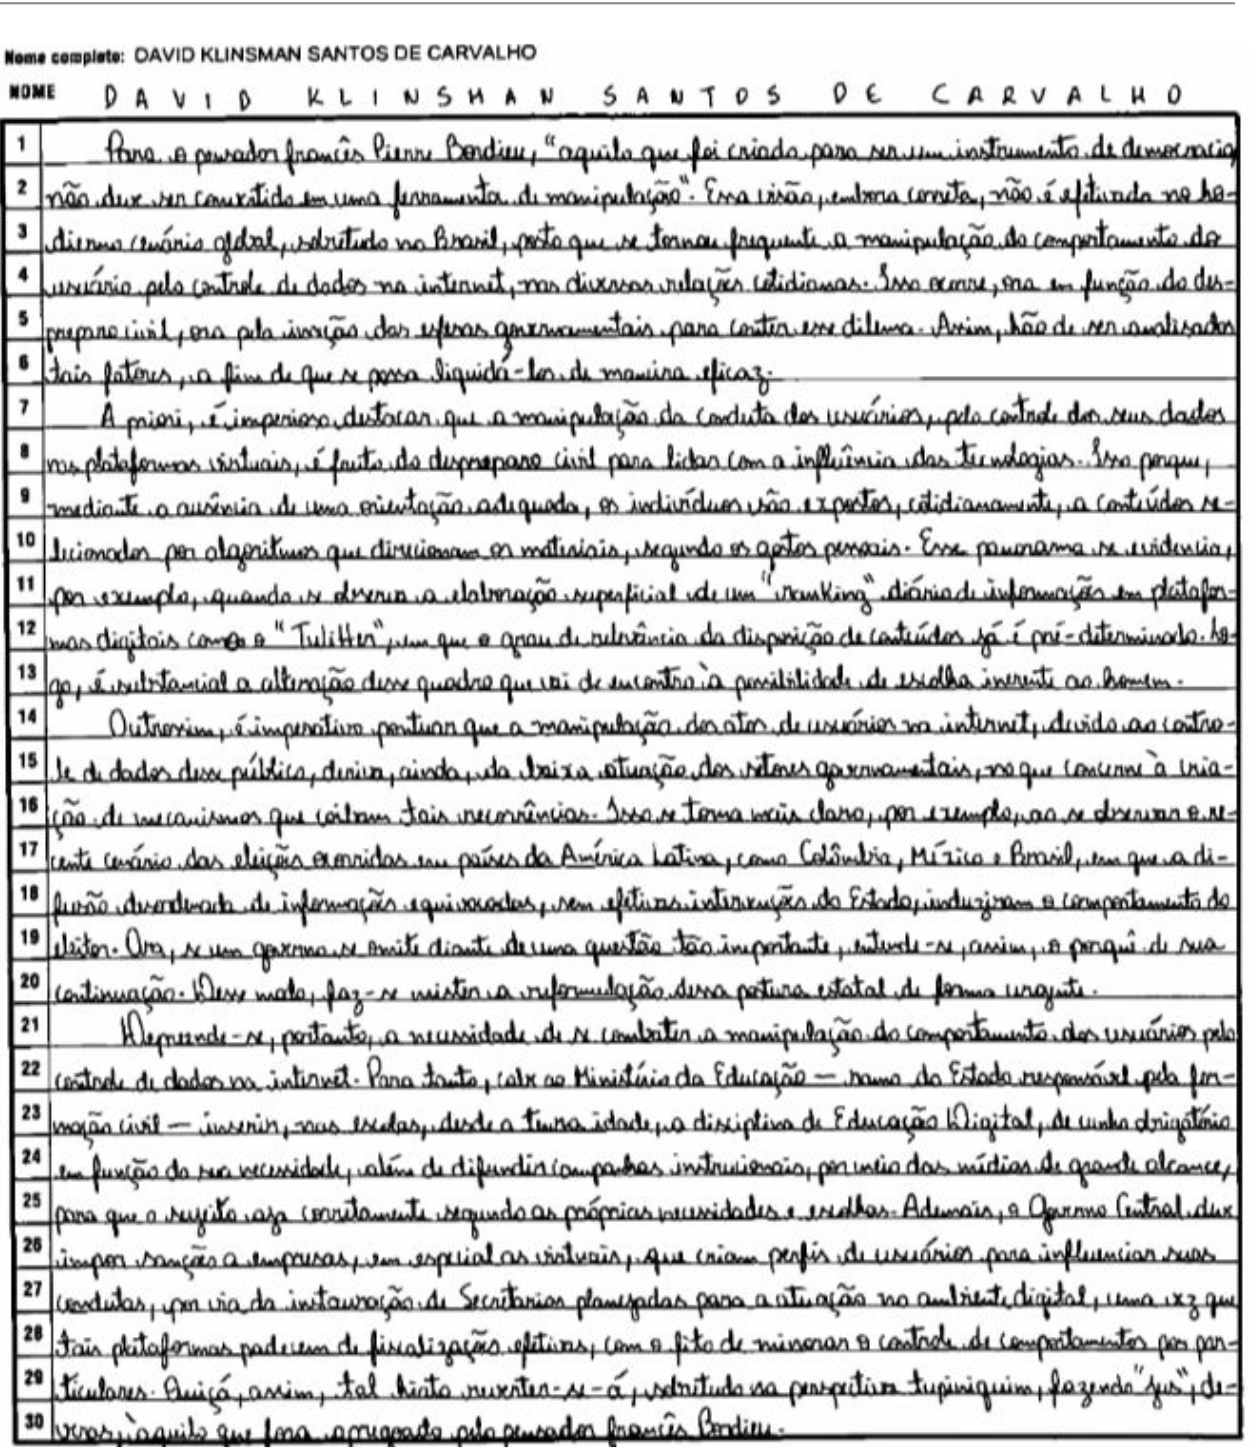 Nome completo: DAVID KLINSMAN SANTOS DE CARVALHO
NOME DAVID KLINSMAN SANTOS DE CARVALHO
1 Para o pensador francês Pierre Bordieu, "aquilo que foi criado para ser um instrumento de democracia
2 não deve ser convertido em uma ferramenta de manipulação". Essa visão, embora correta, não é efetivada no ho-
3 dierno cenário global, sobretudo no Brasil, posto que se tornou frequente a manipulação do comportamento do
4 usuário pelo controle de dados na internet, nas diversas relações cotidianas. Isso ocorre, ora em função do des-
5 preparo civil, ora pela inação das esferas governamentais para conter esse dilema. Assim, hão de ser analisados
6 tais fatores, a fim de que se possa liquidá-los de maneira eficaz.
7 A priori, é imperioso destacar que a manipulação da conduta dos usuários, pelo controle dos seus dados
8 nas plataformas virtuais, é fruto do despreparo civil para lidar com a influência das tecnologias. Isso porque,
9 mediante a ausência de uma orientação adequada, os indivíduos são expostos, cotidianamente, a conteúdos se-
10 lecionados por algoritmos que direcionam os materiais, segundo os gostos pessoais. Esse panorama se evidencia,
11 por exemplo, quando se observa a elaboração superficial de um "ranking" diário de informações em platafor-
12 mas digitais como o "Twitter", em que o grau de relevância da disposição de conteúdos já é pré-determinado. Lo-
13 go, é substancial a alteração desse quadro que vai de encontro à possibilidade de escolha inerente ao homem.
14 Outrossim, é imperativo pontuar que a manipulação dos atos de usuários na internet, devido ao contro-
15 le de dados desse público, deriva, ainda, da baixa atuação dos setores governamentais, no que concerne à cria-
16 ção de mecanismos que coíbam tais recorrências. Isso se torna mais claro, por exemplo, ao se observar o re-
17 cente cenário das eleições ocorridas em países da América Latina, como Colômbia, México e Brasil, em que a di-
18 fusão desordenada de informações equivocadas, sem efetivas intervenções do Estado, induziram o comportamento do
19 eleitor. Ora, se um governo se omite diante de uma questão tão importante, entende-se, assim, o porquê de sua
20 continuação. Desse modo, faz-se mister a reformulação dessa postura estatal de forma urgente.
21 Depreende-se, portanto, a necessidade de se combater a manipulação do comportamento dos usuários pelo
22 controle de dados na internet. Para tanto, cabe ao Ministério da Educação — ramo do Estado responsável pela for-
23 mação civil — inserir, nas escolas, desde a tenra idade, a disciplina de Educação Digital, de cunho obrigatório
24 em função da sua necessidade, além de difundir campanhas instrucionais, por meio das mídias de grande alcance,
25 para que o sujeito aja corretamente segundo as próprias necessidades e escolhas. Ademais, o Governo Central deve
26 impor sanção a empresas, em especial as virtuais, que criam perfis de usuários para influenciar suas
27 condutas, por via da instauração de Secretarias planejadas para a atuação no ambiente digital, uma vez que
28 tais plataformas padecem de fiscalizações efetivas, com o fito de minorar o controle de comportamentos por par-
29 ticulares. Quiçá, assim, tal hiato reverter-se-á, sobretudo na perspectiva tupiniquim, fazendo "jus", de-
30 veras, àquilo que fora apregoado pelo pensador francês Bordieu.